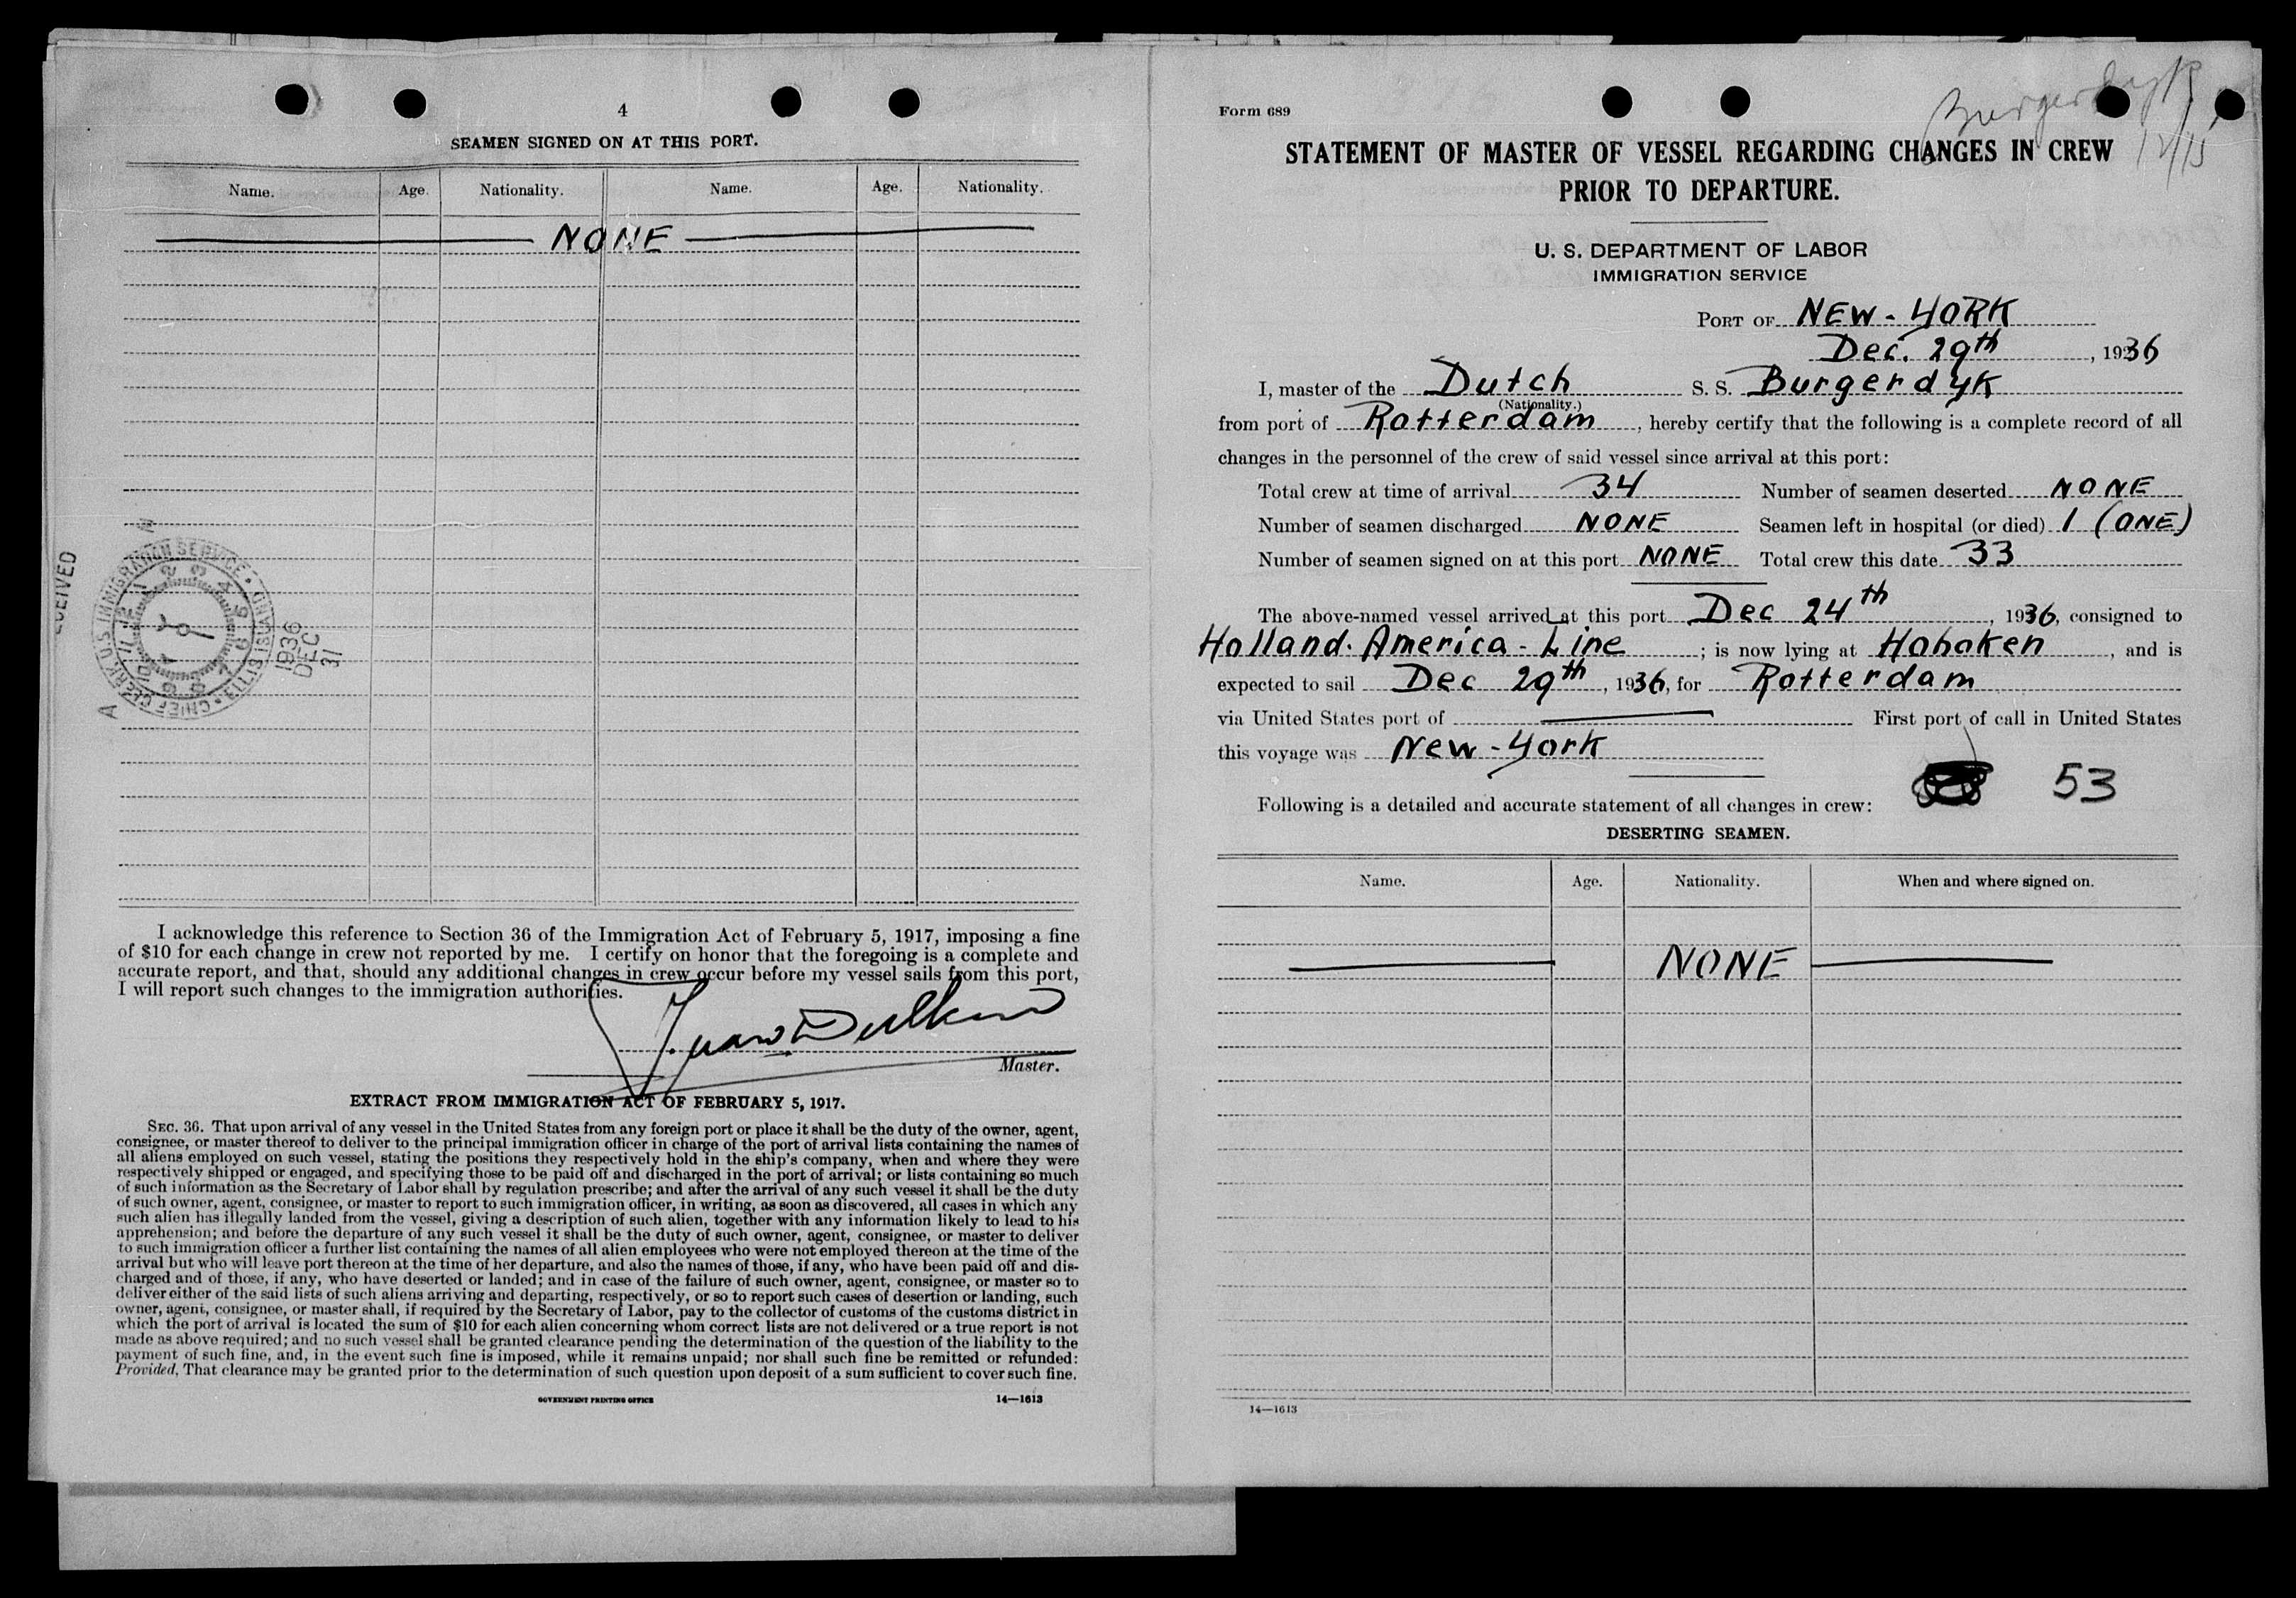 4
SEAMEN SIGNED ON AT THIS PORT.
Name. Age. Nationality. Name. Age. Nationality.
NONE
RECEIVED
CHIEF CLERK U.S. IMMIGRATION SERVICE • ELLIS ISLAND •
1936
DEC
31
I acknowledge this reference to Section 36 of the Immigration Act of February 5, 1917, imposing a fine
of $10 for each change in crew not reported by me. I certify on honor that the foregoing is a complete and
accurate report, and that, should any additional changes in crew occur before my vessel sails from this port,
I will report such changes to the immigration authorities.
Master.
EXTRACT FROM IMMIGRATION ACT OF FEBRUARY 5, 1917.
SEC. 36. That upon arrival of any vessel in the United States from any foreign port or place it shall be the duty of the owner, agent,
consignee, or master thereof to deliver to the principal immigration officer in charge of the port of arrival lists containing the names of
all aliens employed on such vessel, stating the positions they respectively hold in the ship's company, when and where they were
respectively shipped or engaged, and specifying those to be paid off and discharged in the port of arrival; or lists containing so much
of such information as the Secretary of Labor shall by regulation prescribe; and after the arrival of any such vessel it shall be the duty
of such owner, agent, consignee, or master to report to such immigration officer, in writing, as soon as discovered, all cases in which any
such alien has illegally landed from the vessel, giving a description of such alien, together with any information likely to lead to his
apprehension; and before the departure of any such vessel it shall be the duty of such owner, agent, consignee, or master to deliver
to such immigration officer a further list containing the names of all alien employees who were not employed thereon at the time of the
arrival but who will leave port thereon at the time of her departure, and also the names of those, if any, who have been paid off and dis-
charged and of those, if any, who have deserted or landed; and in case of the failure of such owner, agent, consignee, or master so to
deliver either of the said lists of such aliens arriving and departing, respectively, or so to report such cases of desertion or landing, such
owner, agent, consignee, or master shall, if required by the Secretary of Labor, pay to the collector of customs of the customs district in
which the port of arrival is located the sum of $10 for each alien concerning whom correct lists are not delivered or a true report is not
made as above required; and no such vessel shall be granted clearance pending the determination of the question of the liability to the
payment of such fine, and, in the event such fine is imposed, while it remains unpaid; nor shall such fine be remitted or refunded:
Provided, That clearance may be granted prior to the determination of such question upon deposit of a sum sufficient to cover such fine.
GOVERNMENT PRINTING OFFICE 14—1613
Form 689
Burgerdyk
12/15
STATEMENT OF MASTER OF VESSEL REGARDING CHANGES IN CREW
PRIOR TO DEPARTURE.
U. S. DEPARTMENT OF LABOR
IMMIGRATION SERVICE
PORT OF NEW-YORK
Dec. 29th, 1936
I, master of the Dutch S. S. Burgerdyk
(Nationality.)
from port of Rotterdam, hereby certify that the following is a complete record of all
changes in the personnel of the crew of said vessel since arrival at this port:
Total crew at time of arrival 34 Number of seamen deserted NONE
Number of seamen discharged NONE Seamen left in hospital (or died) 1 (ONE)
Number of seamen signed on at this port NONE Total crew this date 33
The above-named vessel arrived at this port Dec 24th, 1936, consigned to
Holland-America-Line; is now lying at Hoboken, and is
expected to sail Dec 29th, 1936, for Rotterdam
via United States port of First port of call in United States
this voyage was New-York
53
Following is a detailed and accurate statement of all changes in crew:
DESERTING SEAMEN.
Name. Age. Nationality. When and where signed on.
NONE
14—1613